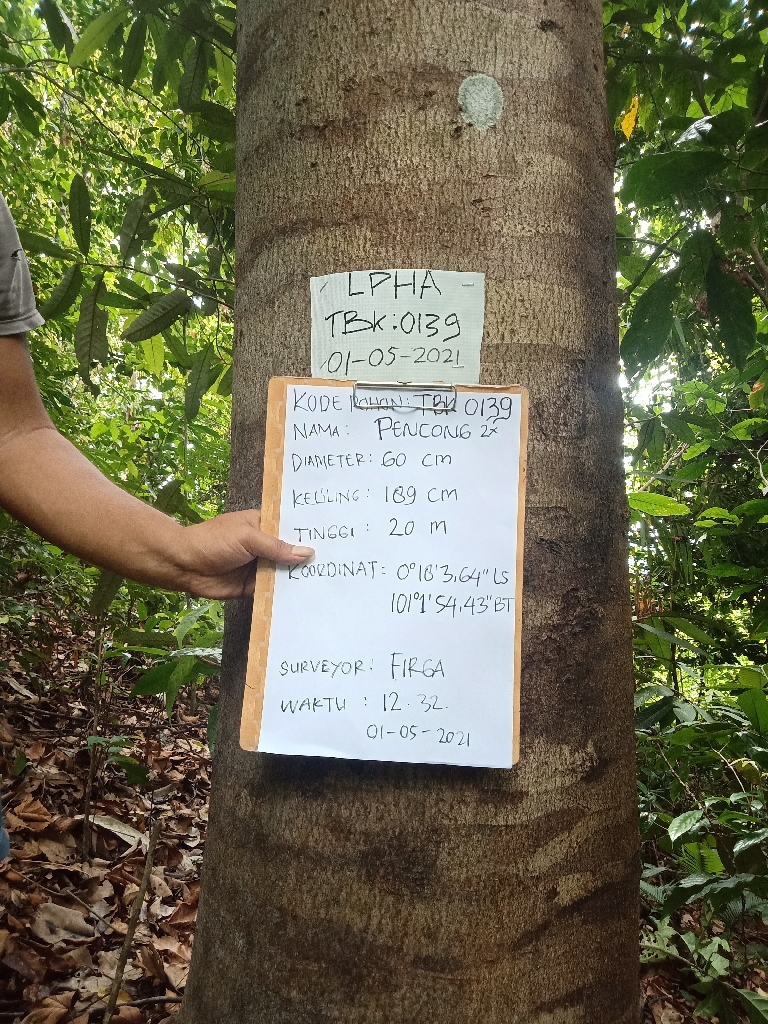 LPHA
TBK:0139
01-05-2021
KODE POHON: TBK 0139
NAMA: PENCONG 2x
DIAMETER: 60 cm
KELILING: 189 cm
TINGGI: 20 m
KOORDINAT: 0°18'3,64" LS
101°1'54,43" BT
SURVEYOR: FIRGA
WAKTU: 12.32.
01-05-2021